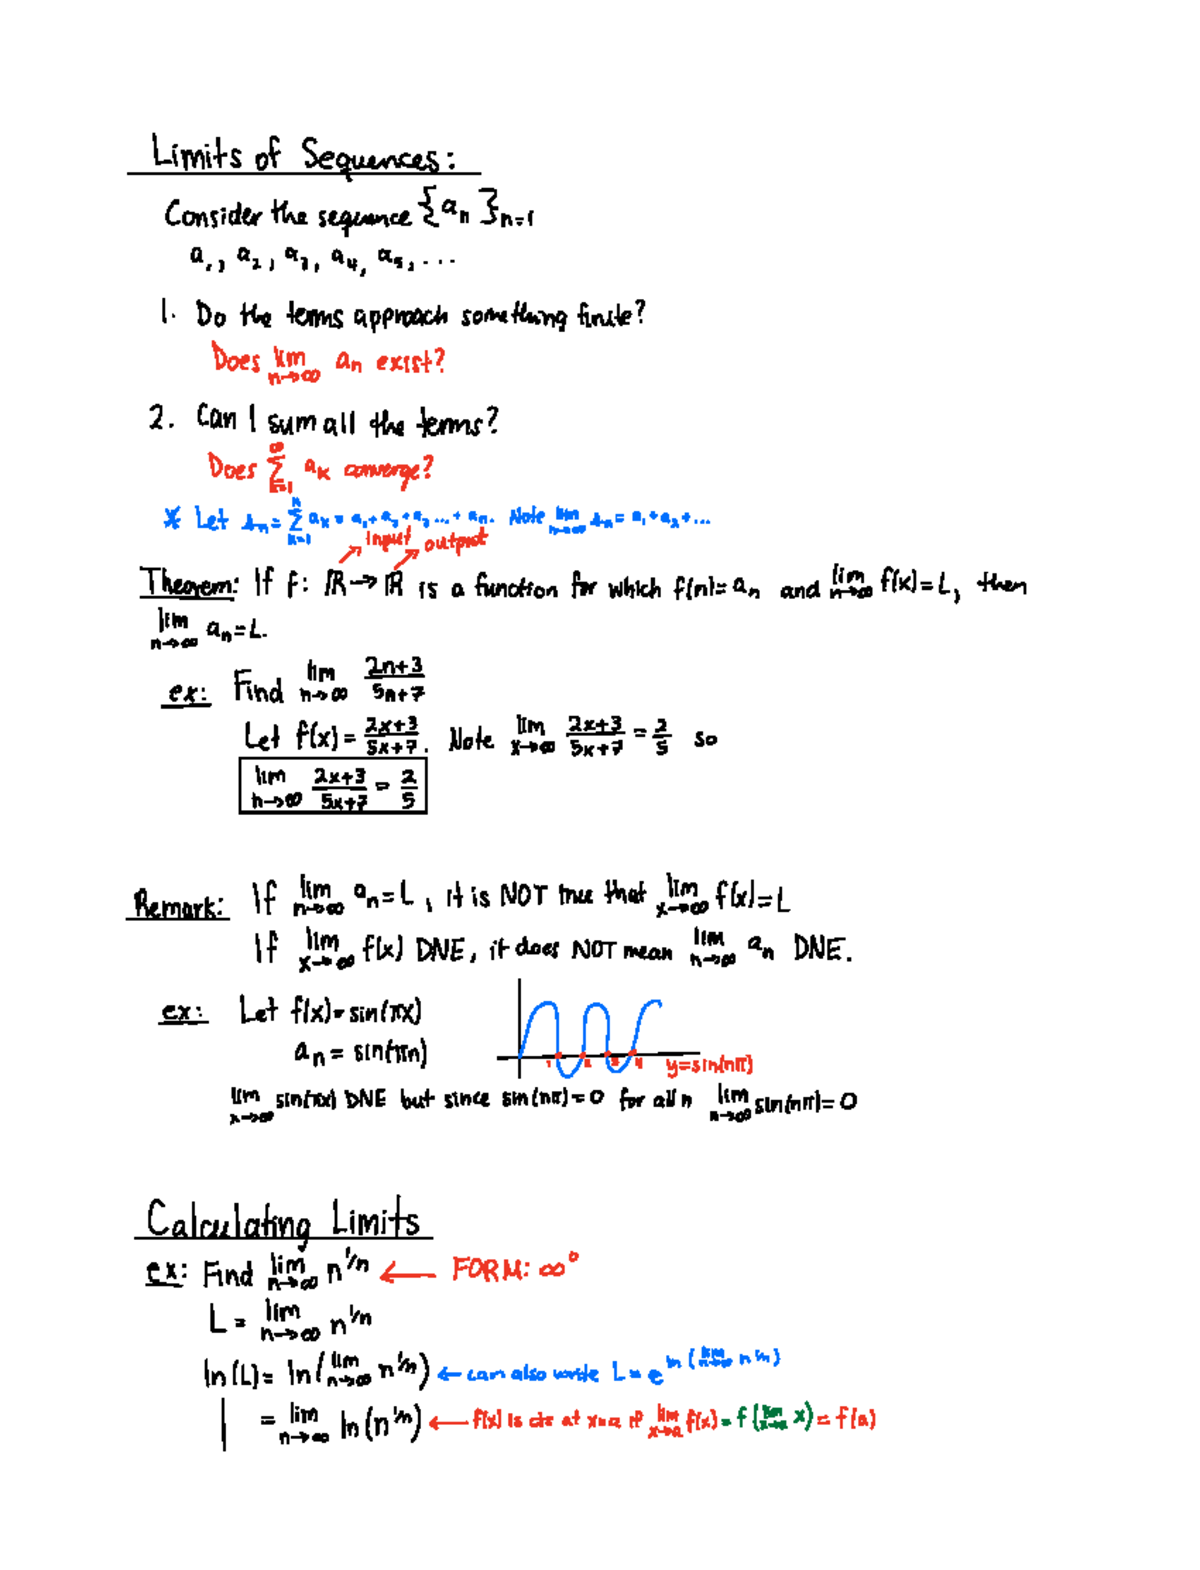 Limits of Sequences:
Consider the sequence {aₙ}ₙ₌₁
a₁, a₂, a₃, a₄, a₅, ...
1. Do the terms approach something finite?
Does lim n→∞ aₙ exist?
2. Can I sum all the terms?
Does ∞ Σ k=1 aₖ converge?
* Let sₙ = n Σ k=1 aₖ = a₁ + a₂ + a₃ ... + aₙ. Note lim n→∞ sₙ = a₁ + a₂ + ...
input output
Theorem: If f: ℝ → ℝ is a function for which f(n) = aₙ and lim n→∞ f(x) = L, then
lim n→∞ aₙ = L.
ex: Find lim n→∞ (2n+3)/(5n+7)
Let f(x) = (2x+3)/(5x+7). Note lim x→∞ (2x+3)/(5x+7) = 2/5 so
lim n→∞ (2x+3)/(5x+7) = 2/5
Remark: If lim n→∞ aₙ = L, it is NOT true that lim x→∞ f(x) = L
If lim x→∞ f(x) DNE, it does NOT mean lim n→∞ aₙ DNE.
ex: Let f(x) = sin(πx)
aₙ = sin(πn)
1 2 3 4 y=sin(nπ)
lim x→∞ sin(πx) DNE but since sin(nπ) = 0 for all n lim n→∞ sin(nπ) = 0
Calculating Limits
ex: Find lim n→∞ n^(1/n) ← FORM: ∞⁰
L = lim n→∞ n^(1/n)
ln(L) = ln(lim n→∞ n^(1/n)) ← can also write L = e^(ln(lim n→∞ n^(1/n)))
| = lim n→∞ ln(n^(1/n)) ← f(x) is cts at x=a if lim x→a f(x) = f(lim x→a x) = f(a)